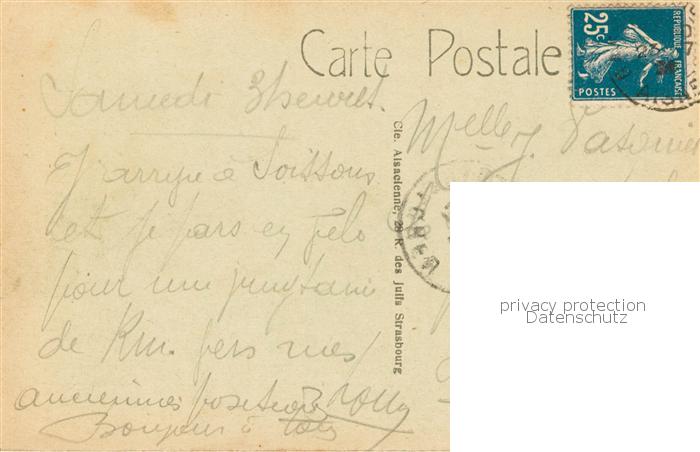 Carte Postale
25c
REPUBLIQUE FRANÇAISE
POSTES
Samedi 3 heures.
J'arrive à Soissons
et je pars en vélo
pour une
de Km. vers mes
anciennes positions
Bonjour à tous
Melle J.
Cie. Alsacienne, 28 R. des Juifs Strasbourg
privacy protection
Datenschutz